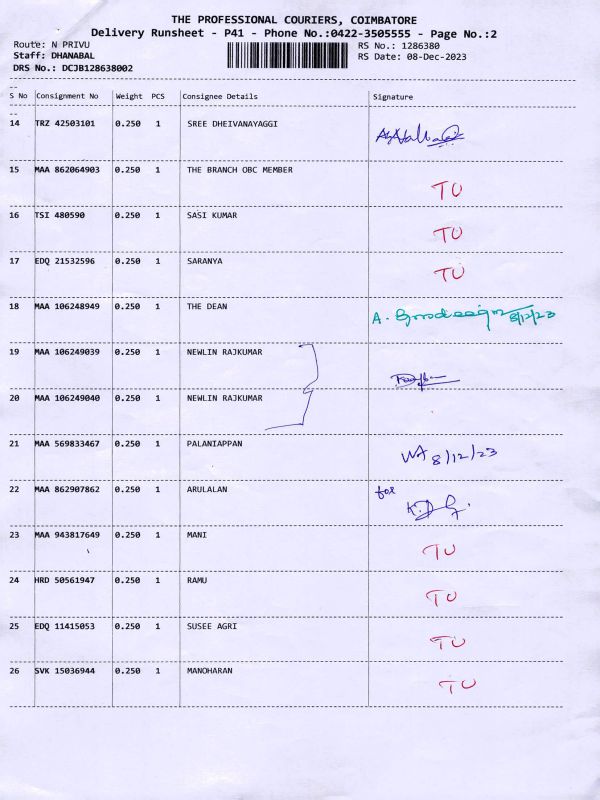 THE PROFESSIONAL COURIERS, COIMBATORE
Delivery Runsheet - P41 - Phone No.:0422-3505555 - Page No.:2
Route: N PRIVU RS No.: 1286380
Staff: DHANABAL RS Date: 08-Dec-2023
DRS No.: DCJB128638002
S No Consignment No Weight PCS Consignee Details Signature
14 TRZ 42503101 0.250 1 SREE DHEIVANAYAGGI
15 MAA 862064903 0.250 1 THE BRANCH OBC MEMBER TU
16 TSI 480590 0.250 1 SASI KUMAR TU
17 EDQ 21532596 0.250 1 SARANYA TU
18 MAA 106248949 0.250 1 THE DEAN A. 8/12/23
19 MAA 106249039 0.250 1 NEWLIN RAJKUMAR
20 MAA 106249040 0.250 1 NEWLIN RAJKUMAR
21 MAA 569833467 0.250 1 PALANIAPPAN 8/12/23
22 MAA 862907862 0.250 1 ARULALAN for
23 MAA 943817649 0.250 1 MANI TU
24 HRD 50561947 0.250 1 RAMU TU
25 EDQ 11415053 0.250 1 SUSEE AGRI TU
26 SVK 15036944 0.250 1 MANOHARAN TU